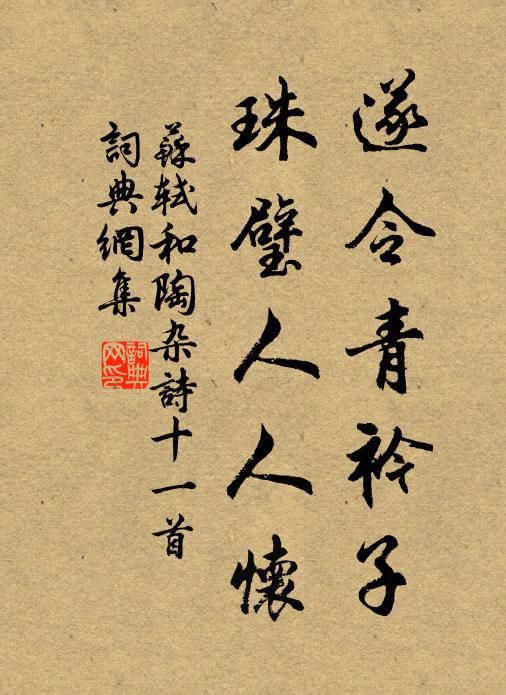 遂令青衿子
珠璧人人懷
蘇軾和陶杂詩十一首
詞典網集
詞典
网印